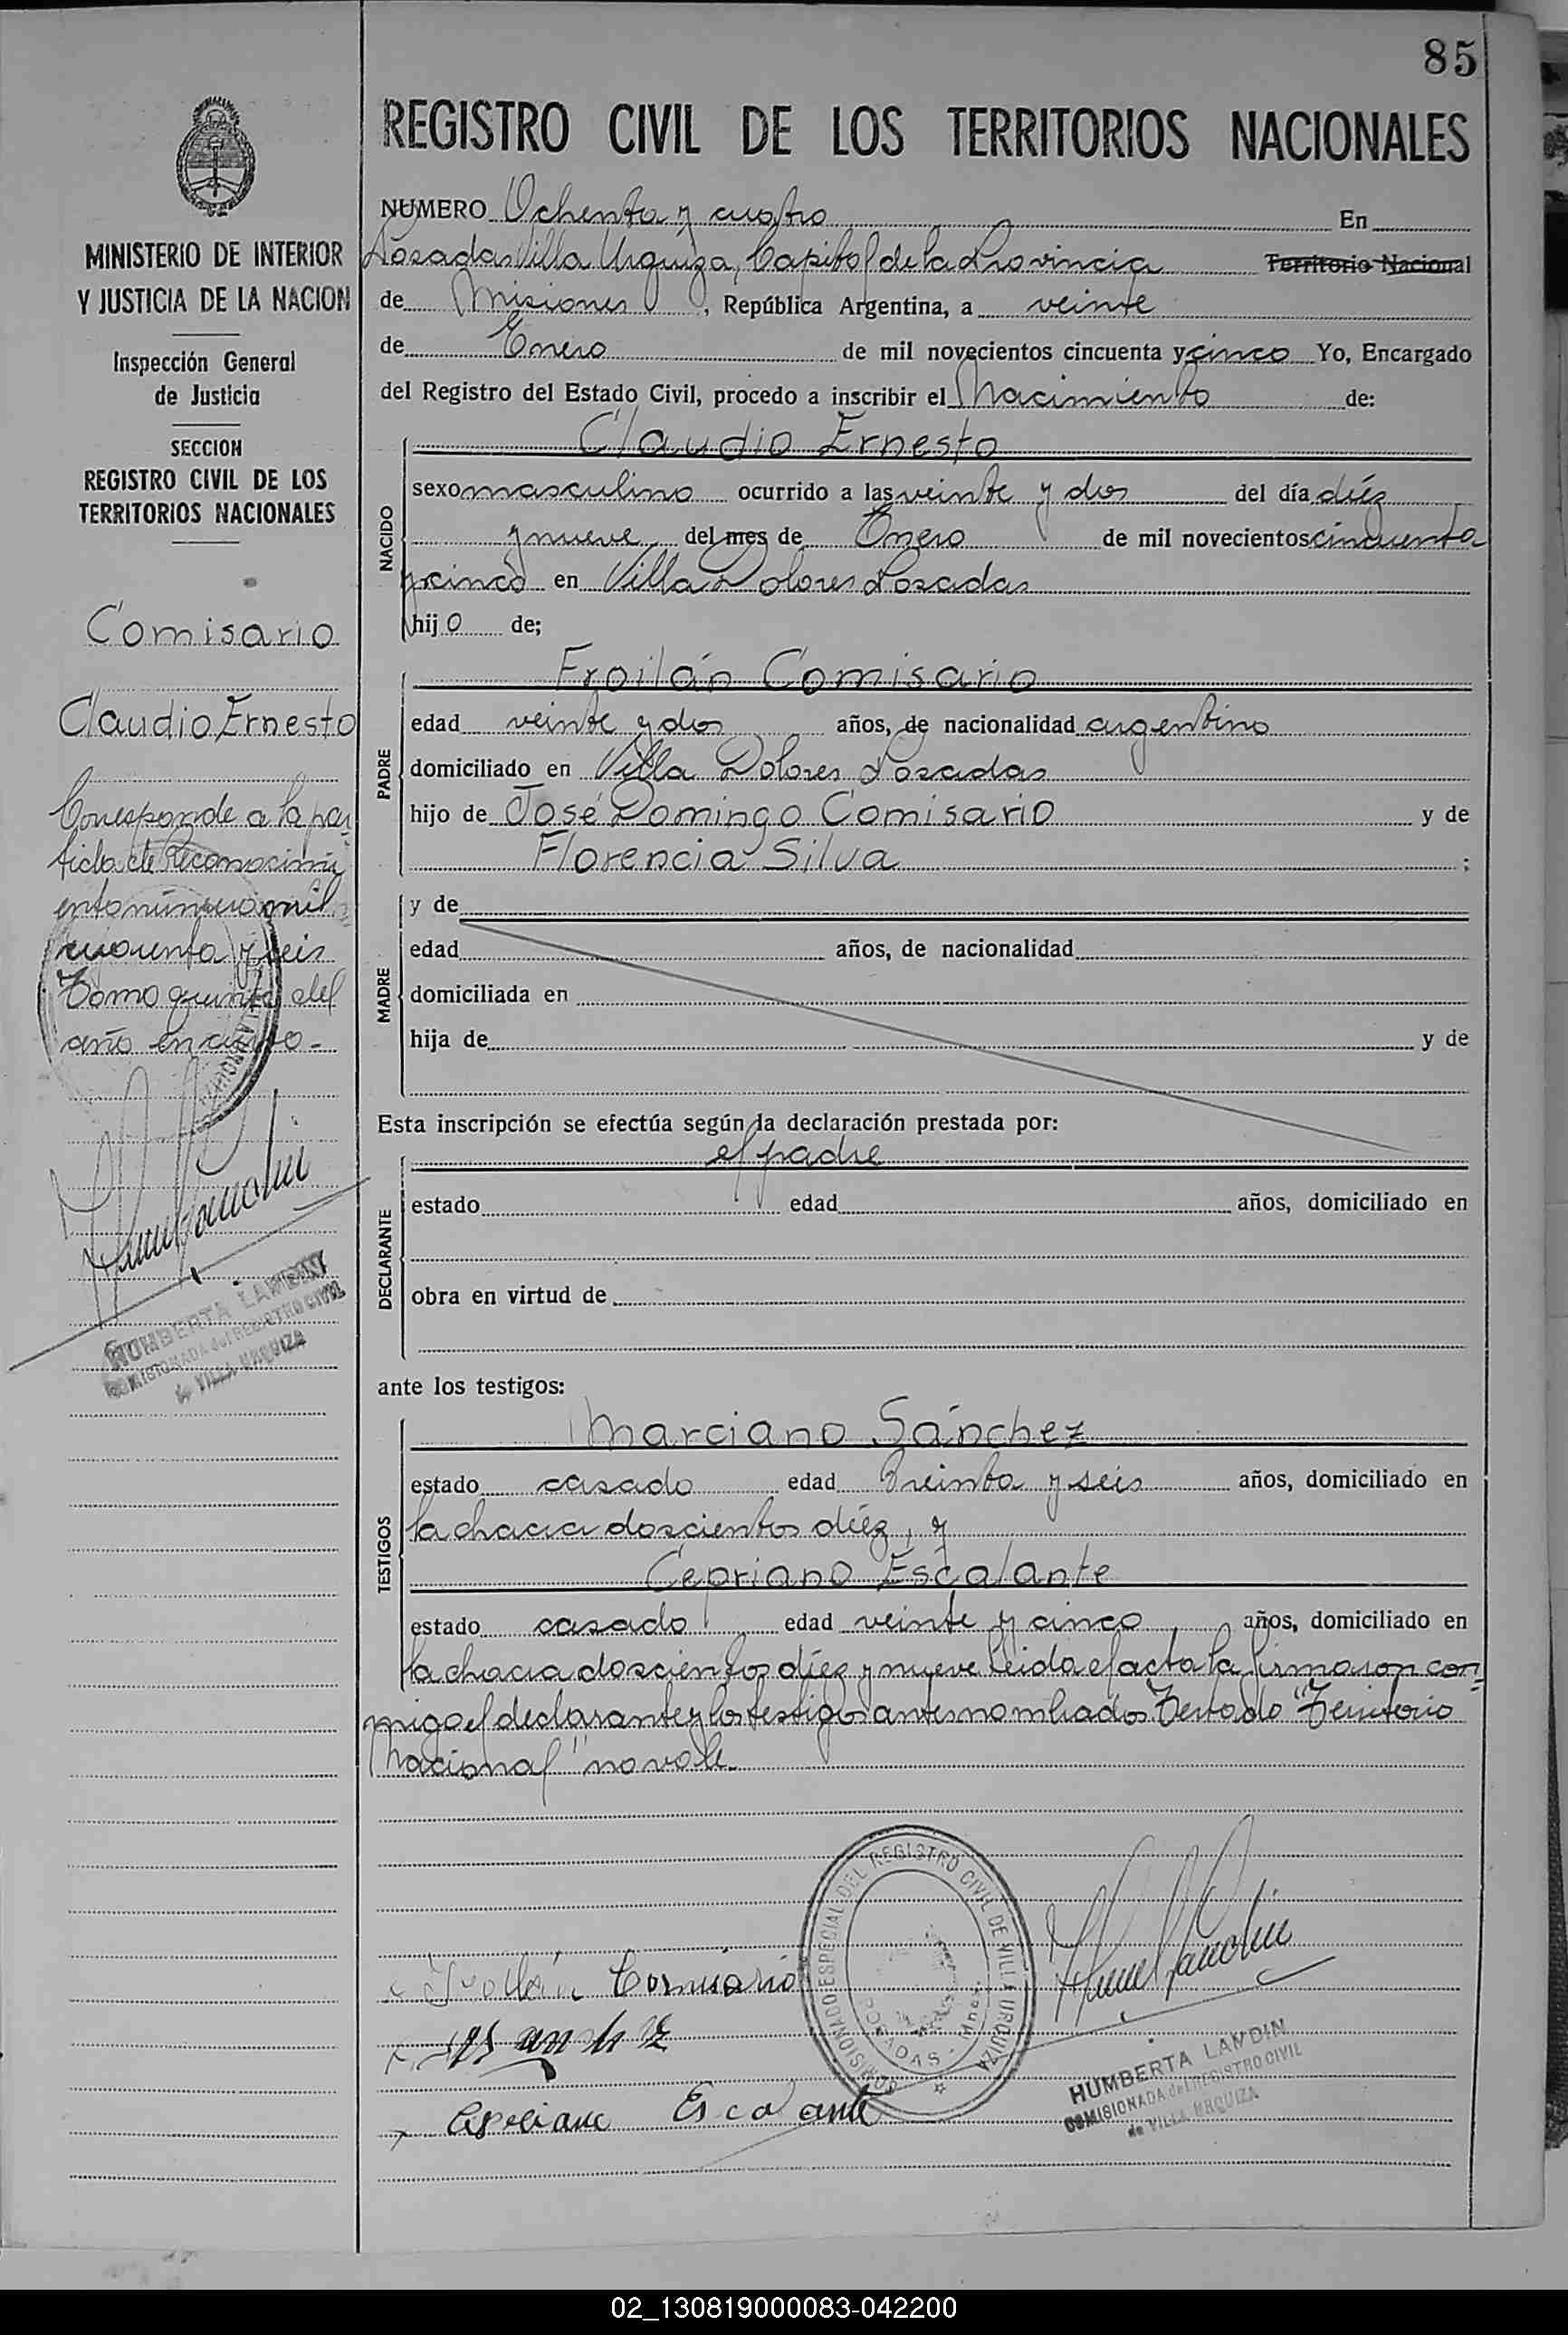 85
REGISTRO CIVIL DE LOS TERRITORIOS NACIONALES
MINISTERIO DE INTERIOR
Y JUSTICIA DE LA NACION
Inspección General
de Justicia
SECCION
REGISTRO CIVIL DE LOS
TERRITORIOS NACIONALES
Comisario
Claudio Ernesto
Corresponde a la par-
tida de Reconocimi
ento número mil
cuarenta y seis
Tomo quinto del
año en curso-
HUMBERTA LANDIN
COMISIONADA del REGISTRO CIVIL
de VILLA URQUIZA
NUMERO Ochenta y cuatro En
Posadas Villa Urquiza, Capital de la Provincia Territorio Nacional
de Misiones, República Argentina, a veinte
de Enero de mil novecientos cincuenta y cinco Yo, Encargado
del Registro del Estado Civil, procedo a inscribir el Nacimiento de:
NACIDO
Claudio Ernesto
sexo masculino ocurrido a las veinte y dos del día diéz
y nueve del mes de Enero de mil novecientos cincuenta
y cinco en Villa Dolores Posadas
hijo de;
PADRE
Froilán Comisario
edad veinte y dos años, de nacionalidad argentino
domiciliado en Villa Dolores Posadas
hijo de José Domingo Comisario y de
Florencia Silva ;
MADRE
y de
edad años, de nacionalidad
domiciliada en
hija de y de
Esta inscripción se efectúa según la declaración prestada por:
DECLARANTE
el padre
estado edad años, domiciliado en
obra en virtud de
ante los testigos:
TESTIGOS
Marciano Sánchez
estado casado edad treinta y seis años, domiciliado en
la chacra doscientos diéz, y
Cepriano Escalante
estado casado edad veinte y cinco años, domiciliado en
la chacra doscientos diéz y nueve Leida el acta la firmaron con-
migo el declarante y los testigos antes nombrados Testado "Territorio
Nacional" no vale.
Froilán Comisario
Cepriano Escalante
COMISIONADO ESPECIAL DEL REGISTRO CIVIL DE VILLA URQUIZA
POSADAS - Mnes.
HUMBERTA LANDIN
COMISIONADA del REGISTRO CIVIL
de VILLA URQUIZA
02_130819000083-042200